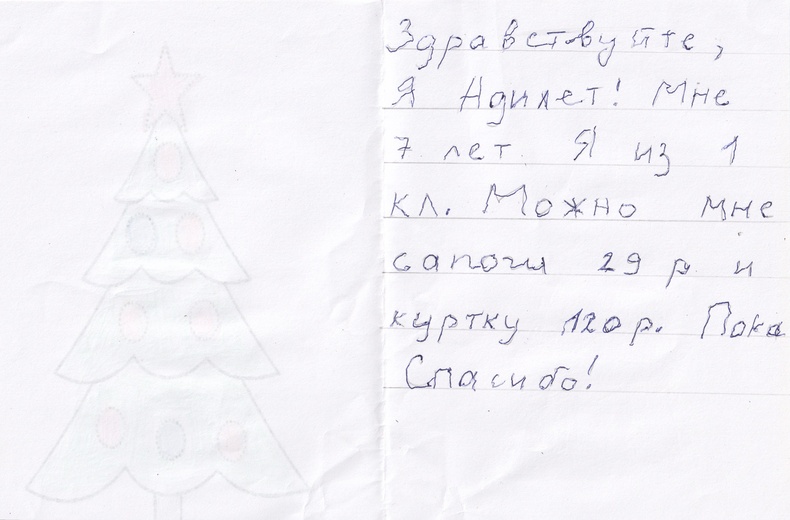 Здравствуйте,
Я Адилет! Мне
7 лет. Я из 1
кл. Можно мне
сапоги 29 р и
куртку 120 р. Пока
Спасибо!